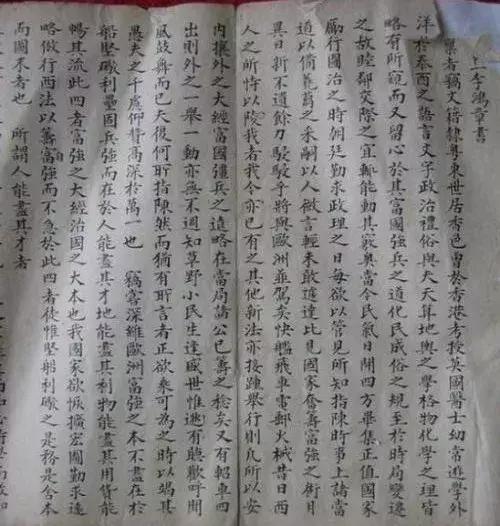 上李鴻章書
竊文籍隸粵東世居香邑曾於香港考授英國醫士幼嘗遊學外
洋於泰西之語言文字政治禮俗與夫天算地輿之學格物化學之理皆
略有所窺而又留心於其富國強兵之道化民成俗之規至於時局變遷
之故睦鄰交際之宜輒能動其竅奧當今民氣日開四方畢集正值國家
勵行圖治之時朝廷勤求政理之日每欲以管見所知指陳時事上諸當
道以備蒭蕘之采嗣以人微言輕未敢遽達比見國家奮籌富強之術月
異日新不遺餘力駸駸乎將與歐洲並駕矣快艦飛車電郵火械昔日西
人之所恃以陵我者我今亦已有之其他新法亦接踵舉行則凡所以安
內攘外之大經富國強兵之遠略在當局諸公已籌之稔矣又有軺車四
出則外之一舉一動亦無不週知草野小民生逢盛世惟逖有聽歡呼聞
風鼓舞而已夫復何所指陳然而猶有所言者正欲乘可為之時以竭其
愚夫之千慮仰贊高深於萬一也 竊嘗深維歐洲富強之本不盡在於
船堅礮利壘固兵強而在於人能盡其才地能盡其利物能盡其用貨能
暢其流此四者富強之大經治國之大本也我國家欲恢擴宏圖勤求遠
略倣行西法以籌自富強而不急於此四者徒惟堅船利礮之是務是舍本
而圖末者也 所謂人能盡其才者